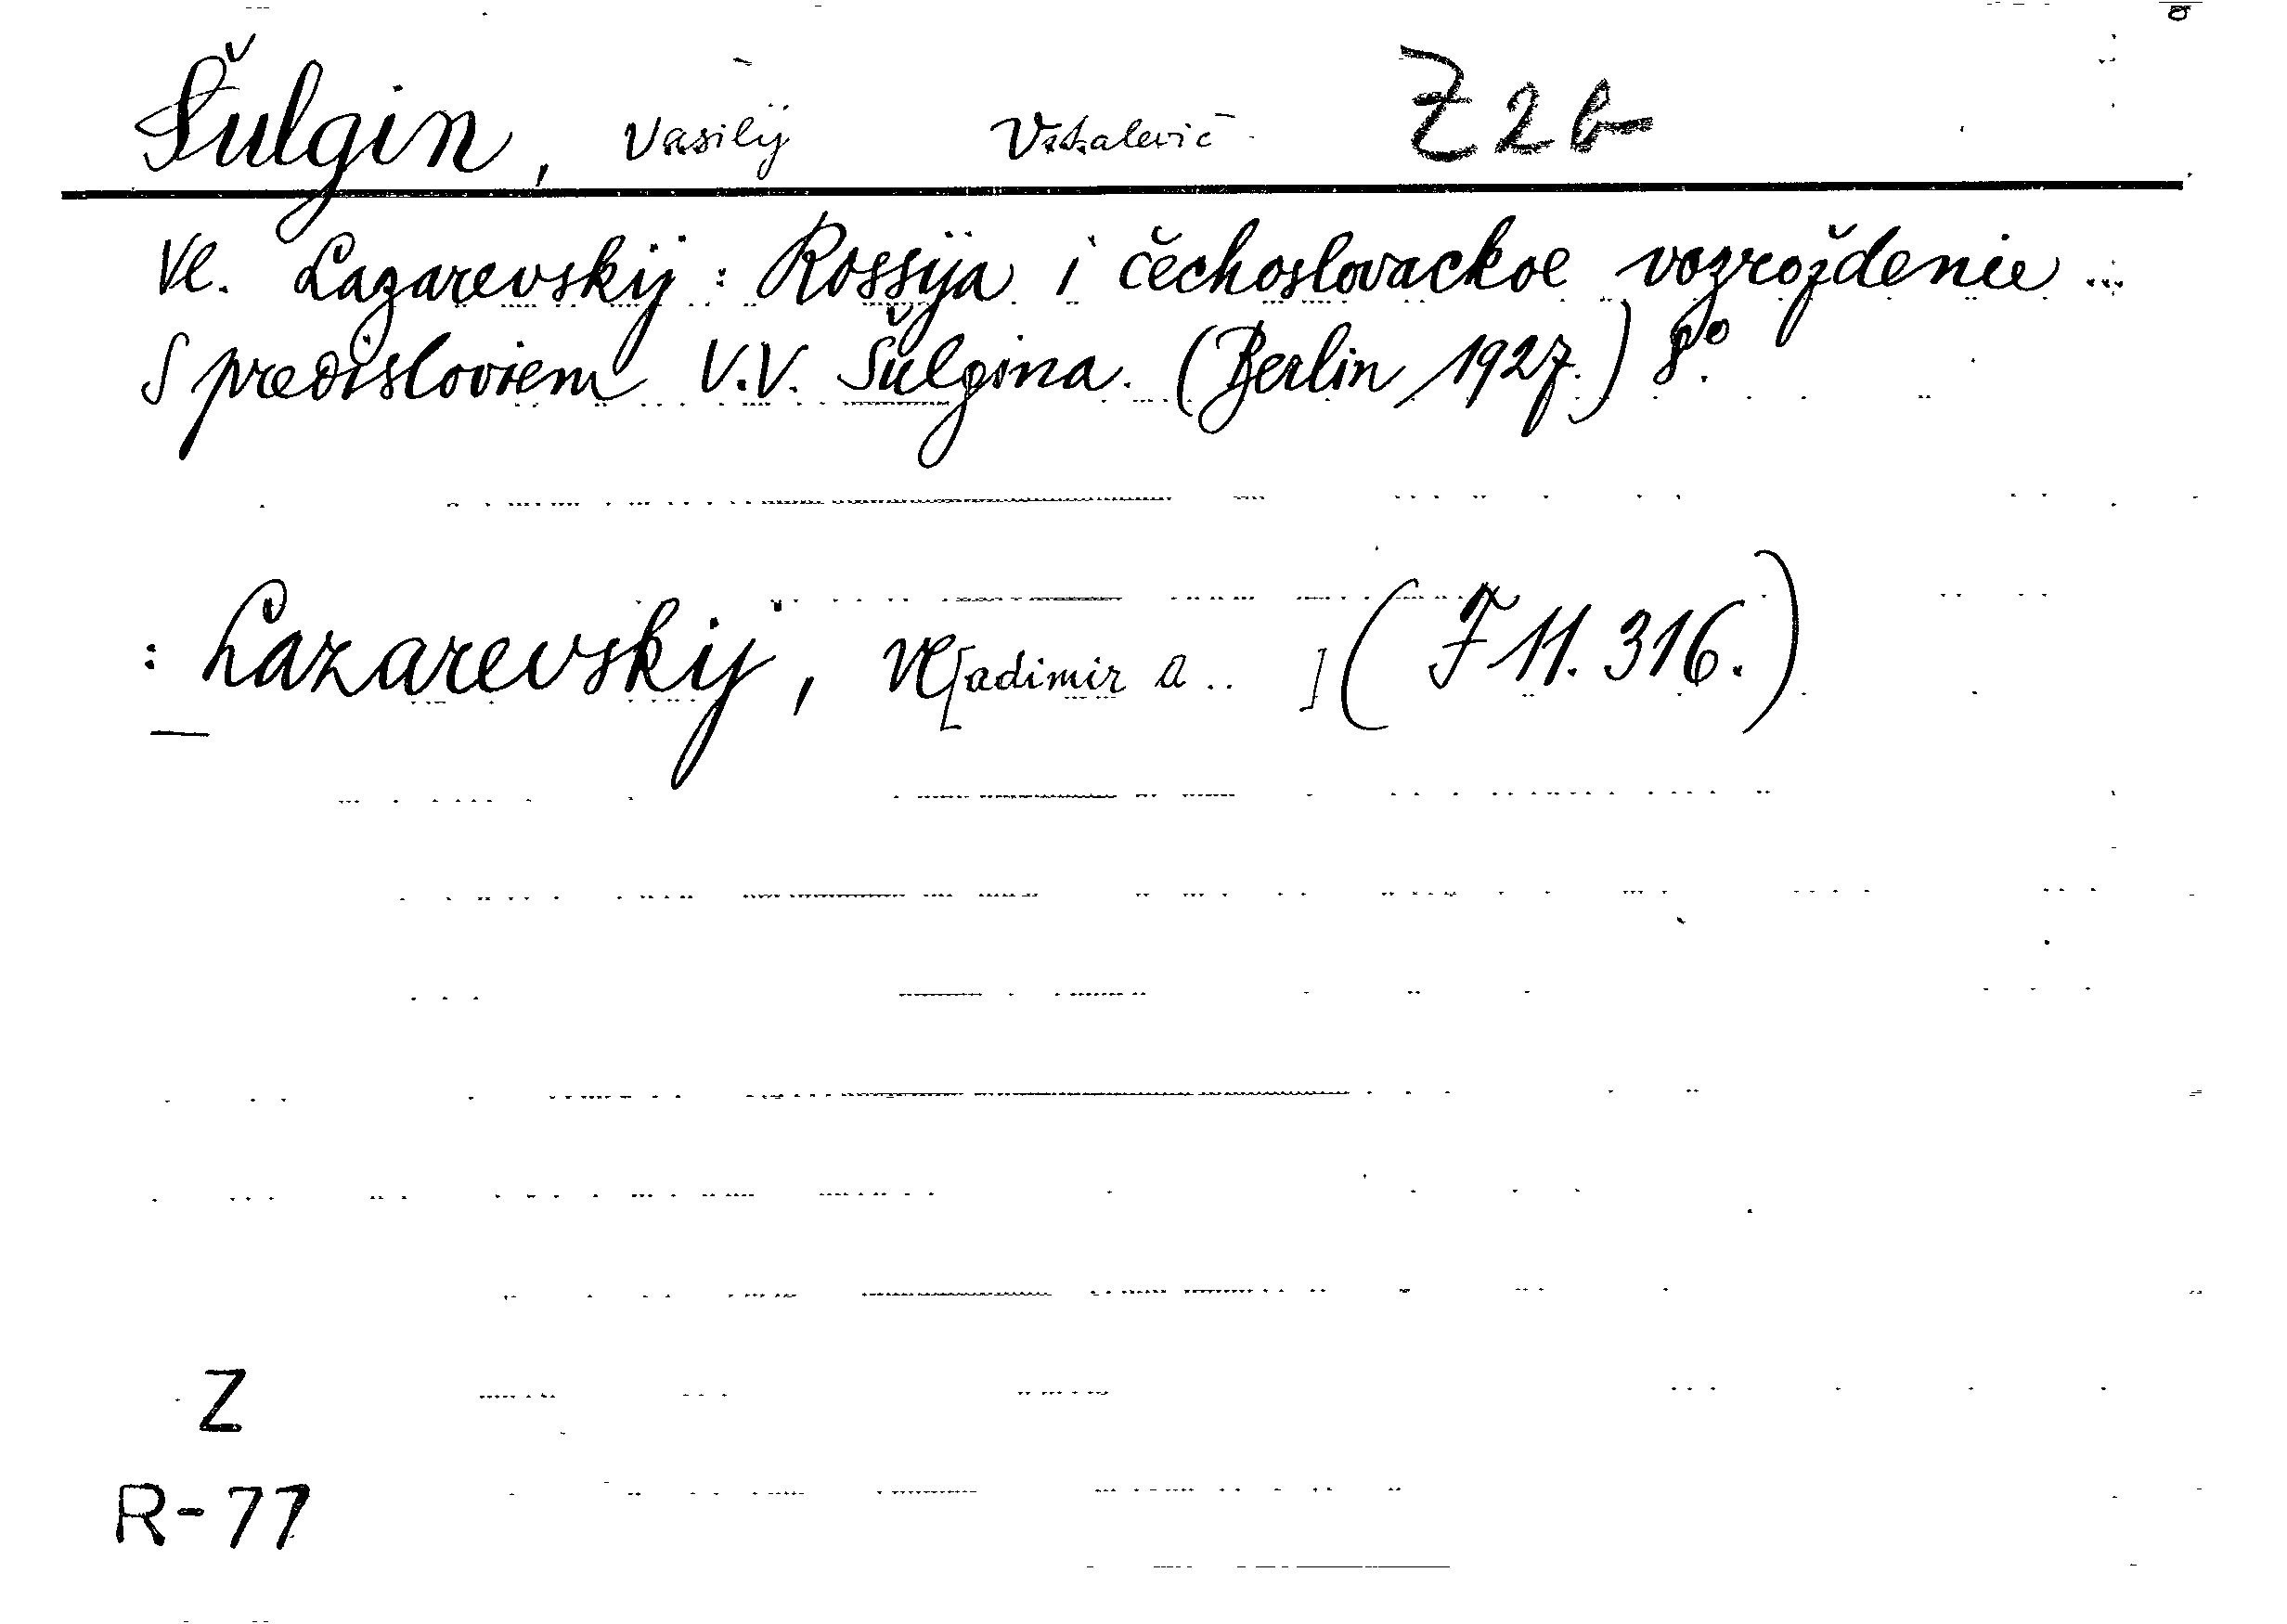 Šulgin, Vasilij Vitalevič Z 2 b
Vl. Lazarevskij: Rossija i čechoslovackoe vozroždenie ...
S predisloviem V.V. Šulgina. (Berlin 1927.) 8°.
: Lazarevskij, Vl[adimir A.. ] (F 11. 316.)
Z
R-77